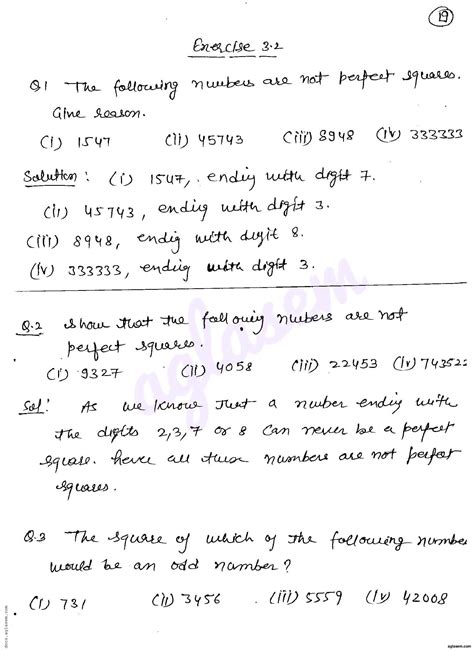 19
Exercise 3.2
Q1 The following numbers are not perfect squares.
Give reason.
(i) 1547 (ii) 45743 (iii) 8948 (iv) 333333
Solution : (i) 1547, endig with digit 7.
(ii) 45743, endig with digit 3.
(iii) 8948, endig with digit 8.
(iv) 333333, endig with digit 3.
Q.2 Show that the following numbers are not
perfect squares.
(i) 9327 (ii) 4058 (iii) 22453 (iv) 743522
Sol: As we know that a number endig with
the digits 2,3,7 or 8 can never be a perfect
square. hence all these numbers are not perfect
squares.
Q.3 The square of which of the following number
would be an odd number?
(i) 731 (ii) 3456 (iii) 5559 (iv) 42008
aglasem
docs.aglasem.com
aglasem.com